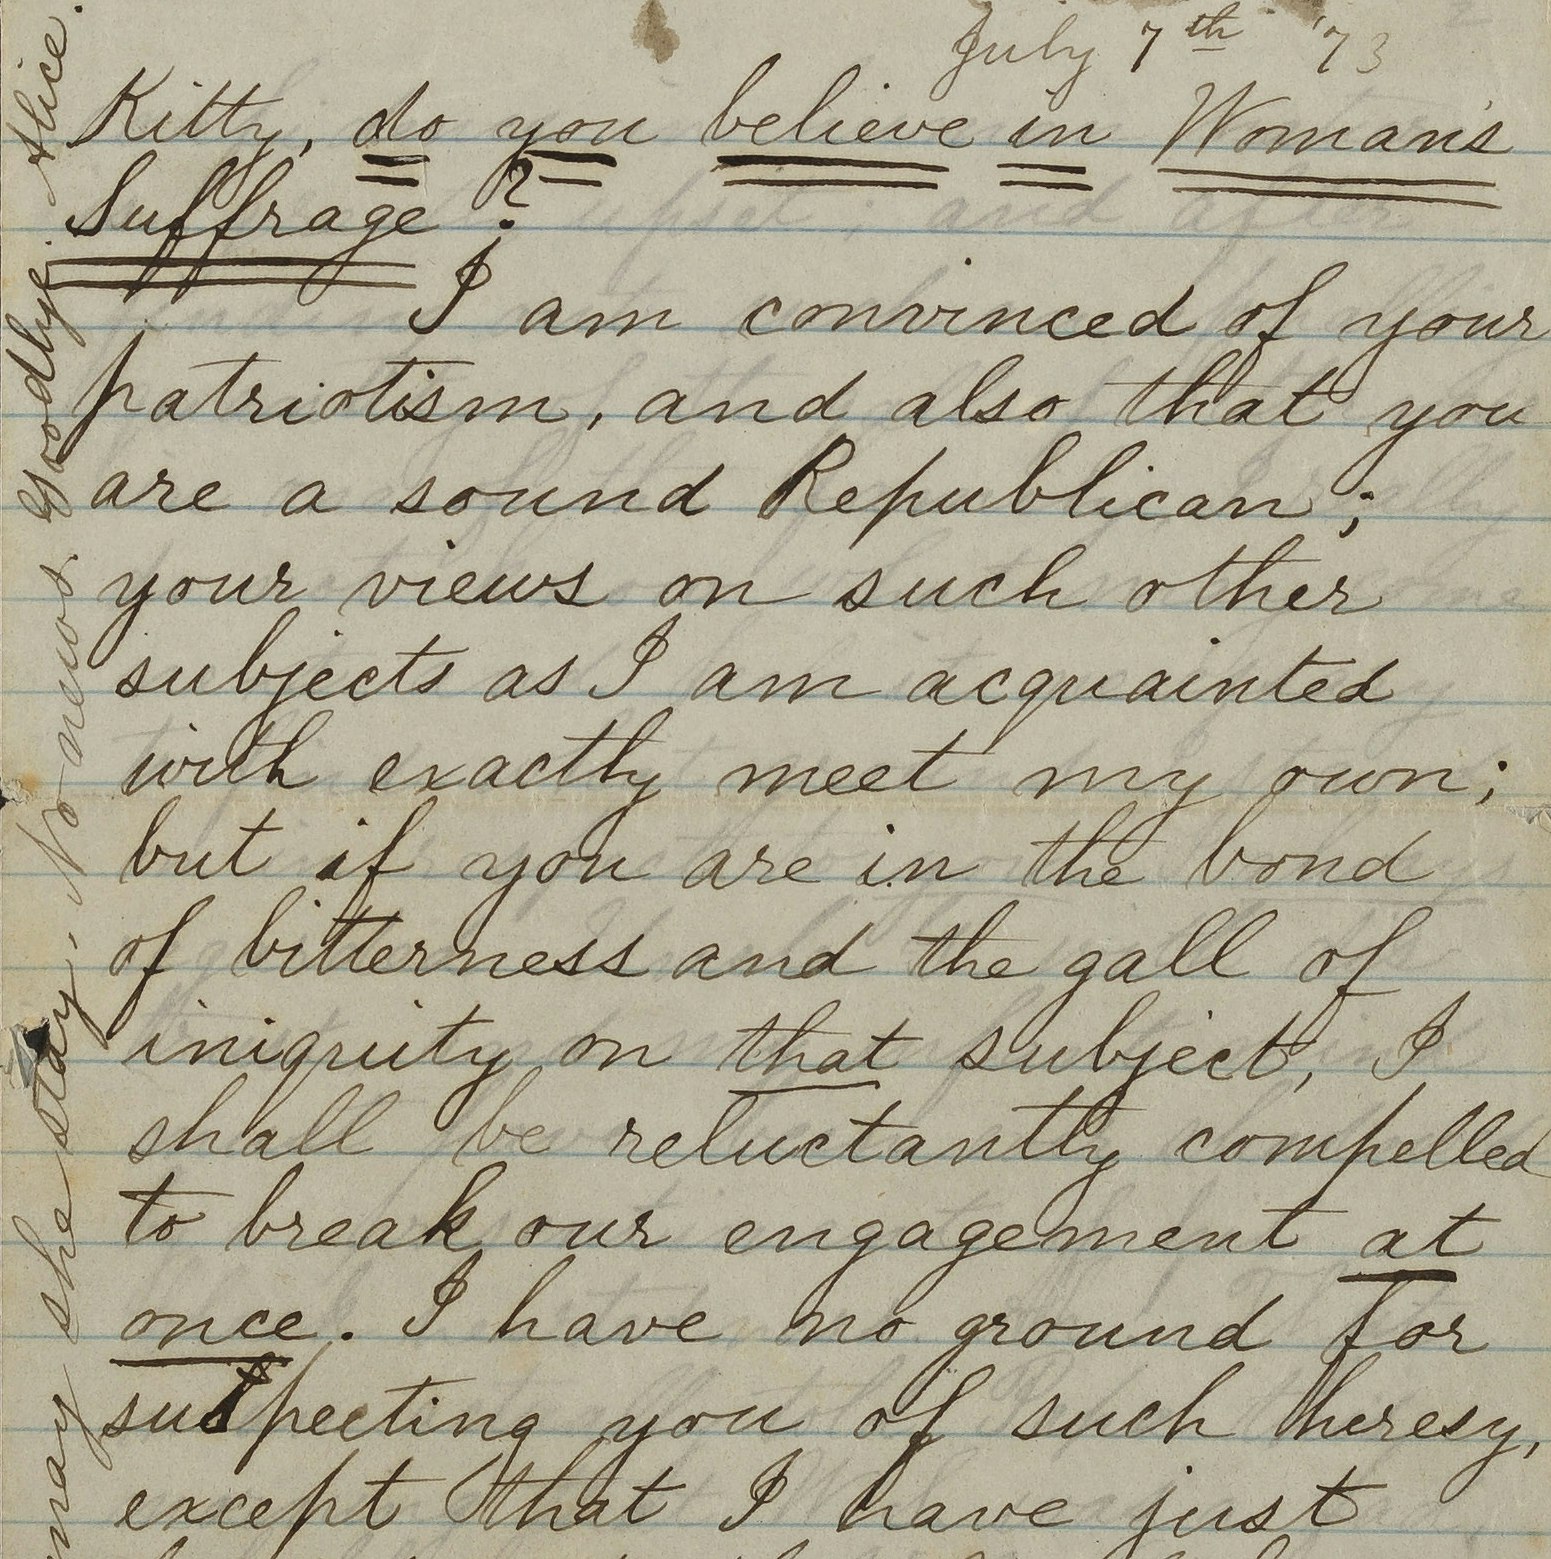 July 7th '73
Kitty, do you believe in Woman's
Suffrage?
I am convinced of your
patriotism, and also that you
are a sound Republican;
your views on such other
subjects as I am acquainted
with exactly meet my own;
but if you are in the bond
of bitterness and the gall of
iniquity on that subject, I
shall be reluctantly compelled
to break our engagement at
once. I have no ground for
suspecting you of such heresy,
except that I have just
may she stay. No news. Goodbye. Alice.